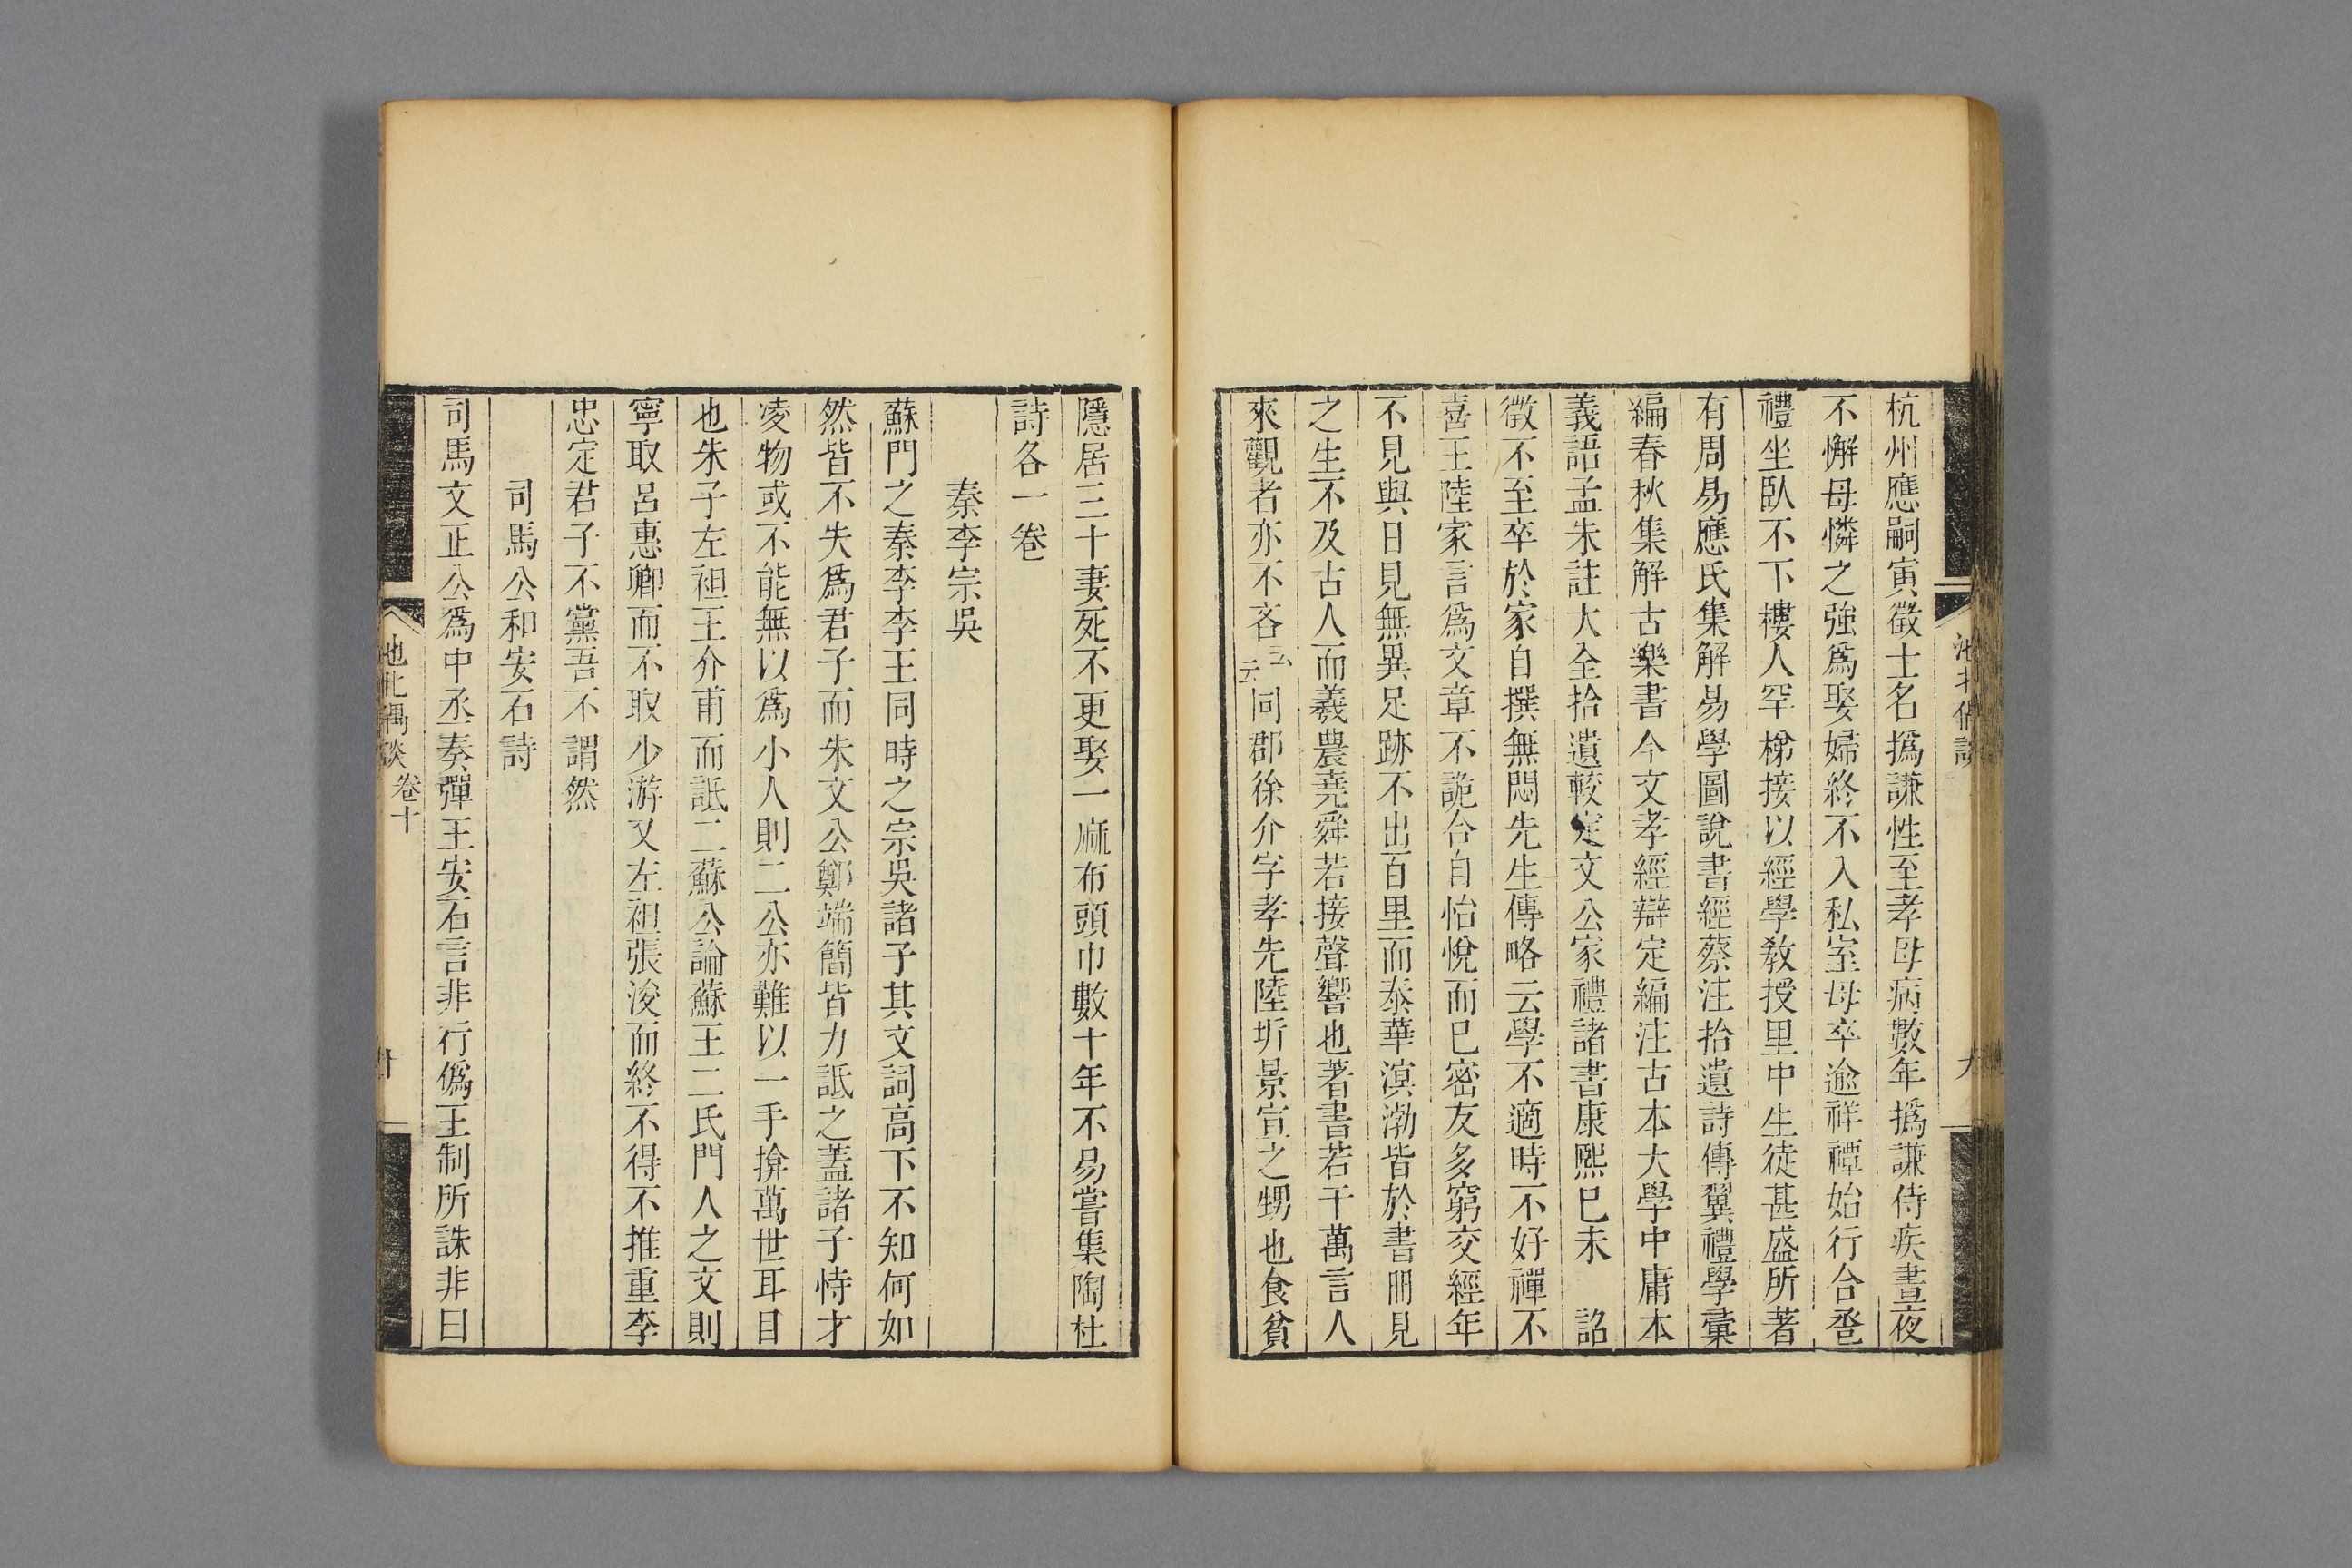 杭州應嗣寅徵士名撝謙性至孝母病數年撝謙侍疾晝夜
不懈母憐之強爲娶婦終不入私室母卒逾祥禫始行合卺
禮坐臥不下樓人罕梯接以經學敎授里中生徒甚盛所著
有周易應氏集解易學圖說書經蔡注拾遺詩傳翼禮學彙
編春秋集解古樂書今文孝經辯定編注古本大學中庸本
義語孟朱註大全拾遺較定文公家禮諸書康熙已未　詔
徵不至卒於家自撰無悶先生傳略云學不適時不好禪不
喜王陸家言爲文章不詭合自怡悅而已密友多窮交經年
不見與日見無異足跡不出百里而泰華溟渤皆於書冊見
之生不及古人而羲農堯舜若接聲響也著書若干萬言人
來觀者亦不吝云云同郡徐介字孝先陸圻景宣之甥也食貧
隱居三十妻死不更娶一麻布頭巾數十年不易嘗集陶杜
詩各一卷
秦李宗吳
蘇門之秦李李王同時之宗吳諸子其文詞高下不知何如
然皆不失爲君子而朱文公鄭端簡皆力詆之蓋諸子恃才
凌物或不能無以爲小人則二公亦難以一手揜萬世耳目
也朱子左袒王介甫而詆二蘇公論蘇王二氏門人之文則
寧取呂惠卿而不取少游又左袒張浚而終不得不推重李
忠定君子不黨吾不謂然
司馬公和安石詩
司馬文正公爲中丞奏彈王安石言非行僞王制所誅非曰
池北偶談
卷十